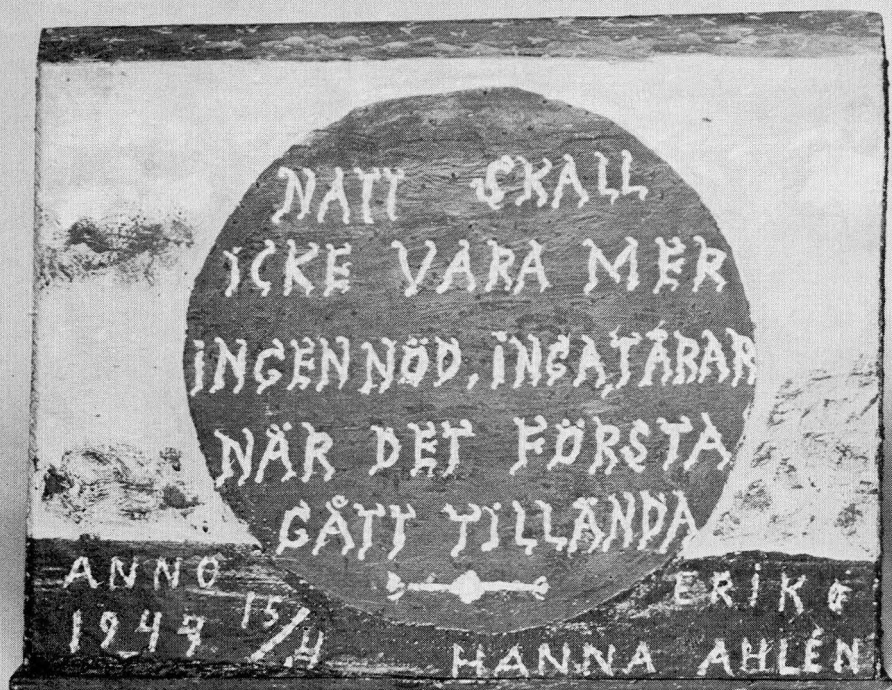 NATT SKALL
ICKE VARA MER
INGEN NÖD, INGA TÅRAR
NÄR DET FÖRSTA
GÅTT TILLÄNDA
ANNO
1947 15/4
ERIK &
HANNA AHLÉN